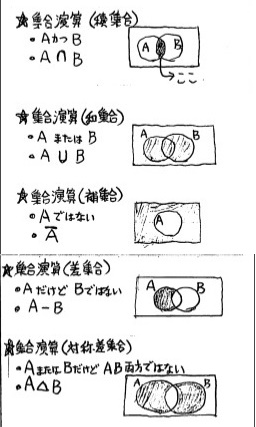 ☆集合演算(積集合)
・AかつB
・A∩B
A B
ここ
☆集合演算(和集合)
・AまたはB
・A∪B
A B
☆集合演算(補集合)
・Aではない
・A̅
A
☆集合演算(差集合)
・AだけどBではない
・A-B
A B
☆集合演算(対称差集合)
・AまたはBだけどAB両方ではない
・A△B
A B